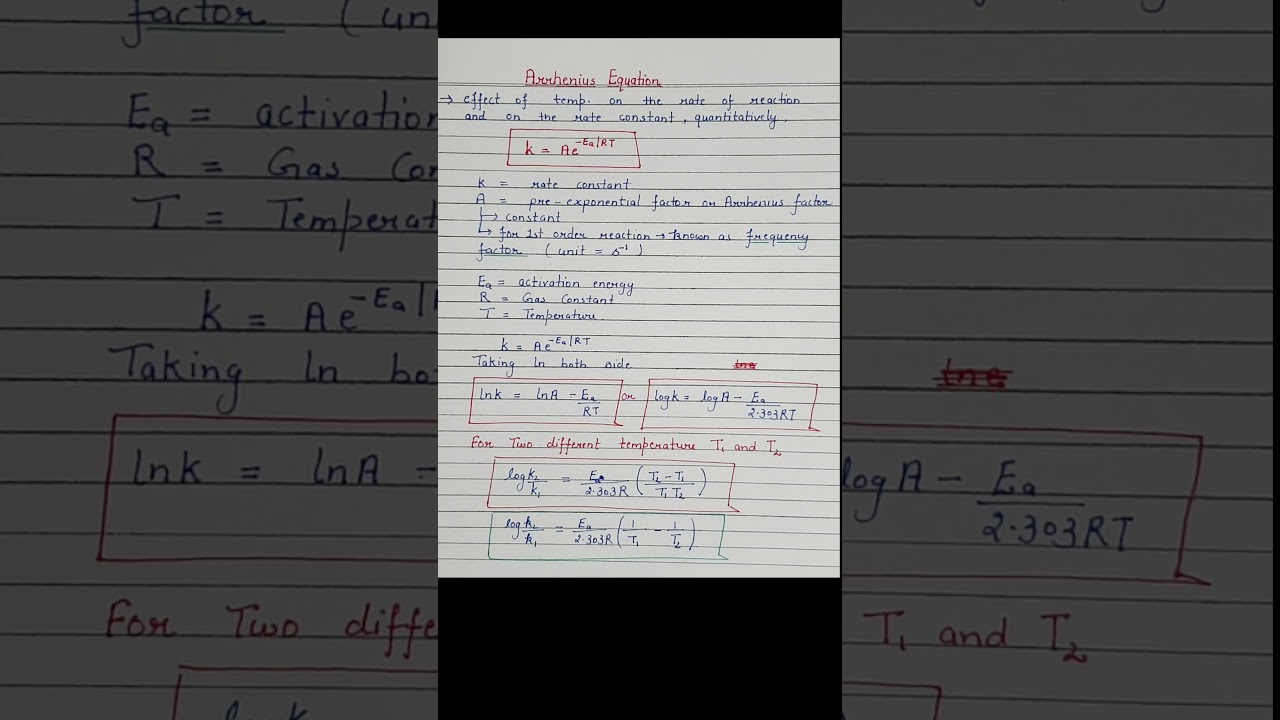 Arrhenius Equation
→ effect of temp. on the rate of reaction
and on the rate constant, quantitatively.
k = Ae^-Ea/RT
K = rate constant
A = pre-exponential factor or Arrhenius factor
↳ constant
↳ for 1st order reaction → known as frequency
factor (unit = s⁻¹)
Ea = activation energy
R = Gas Constant
T = Temperature
k = Ae^-Ea/RT
Taking ln both side
lnk = lnA - Ea/RT or logk = logA - Ea/2.303RT
For Two different temperature T₁ and T₂
log k₂/k₁ = Ea/2.303R (T₂ - T₁/T₁T₂)
log k₂/k₁ = Ea/2.303R (1/T₁ - 1/T₂)